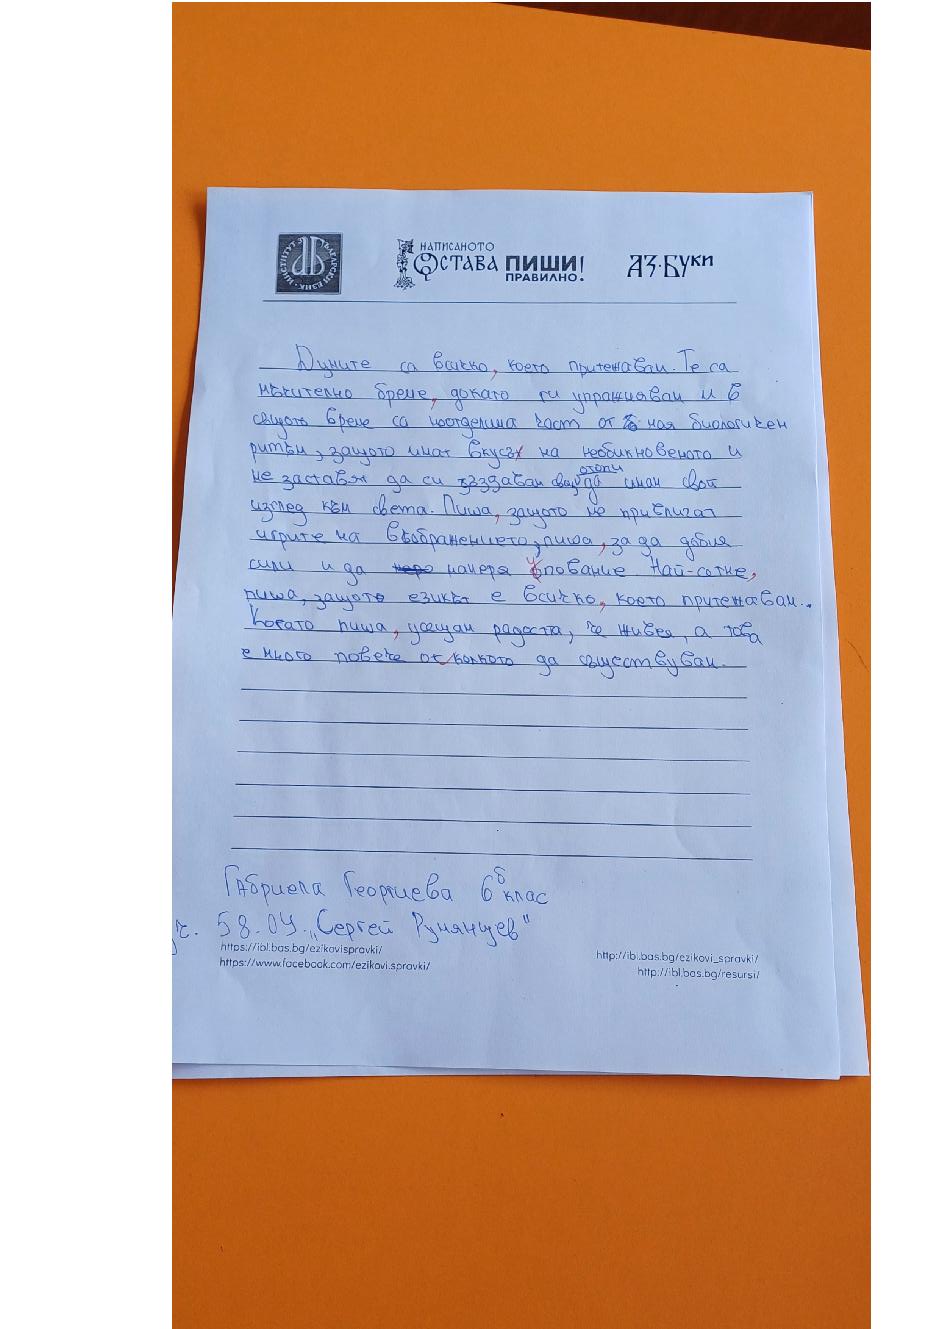 ИНСТИТУТ ЗА БЪЛГАРСКИ ЕЗИК
НАПИСАНОТО
ОСТАВА ПИШИ!
ПРАВИЛНО.
АЗ·БУКИ
Думите са всичко, което притежавам. Те са
мъчително бреме, докато ги упражнявам и в
същото време са неотделима част от моя биологичен
ритъм, защото имат вкусът на необикновеното и
ме заставят да си създавам свой да имам свой
отопи
изглед към света. Пиша, защото ме привличат
игрите на въображението, пиша, за да добия
сили и да намеря упование Най-сетне,
пиша, защото езикът е всичко, което притежавам.
Когато пиша, усещам радоста, че живея, а това
е много повече отколкото да съществувам.
Габриела Георгиева 6б клас
58.ОУ „Сергей Румянцев"
https://ibl.bas.bg/ezikovispravki/
https://www.facebook.com/ezikovi.spravki/
http://ibl.bas.bg/ezikovi_spravki/
http://ibl.bas.bg/resursi/